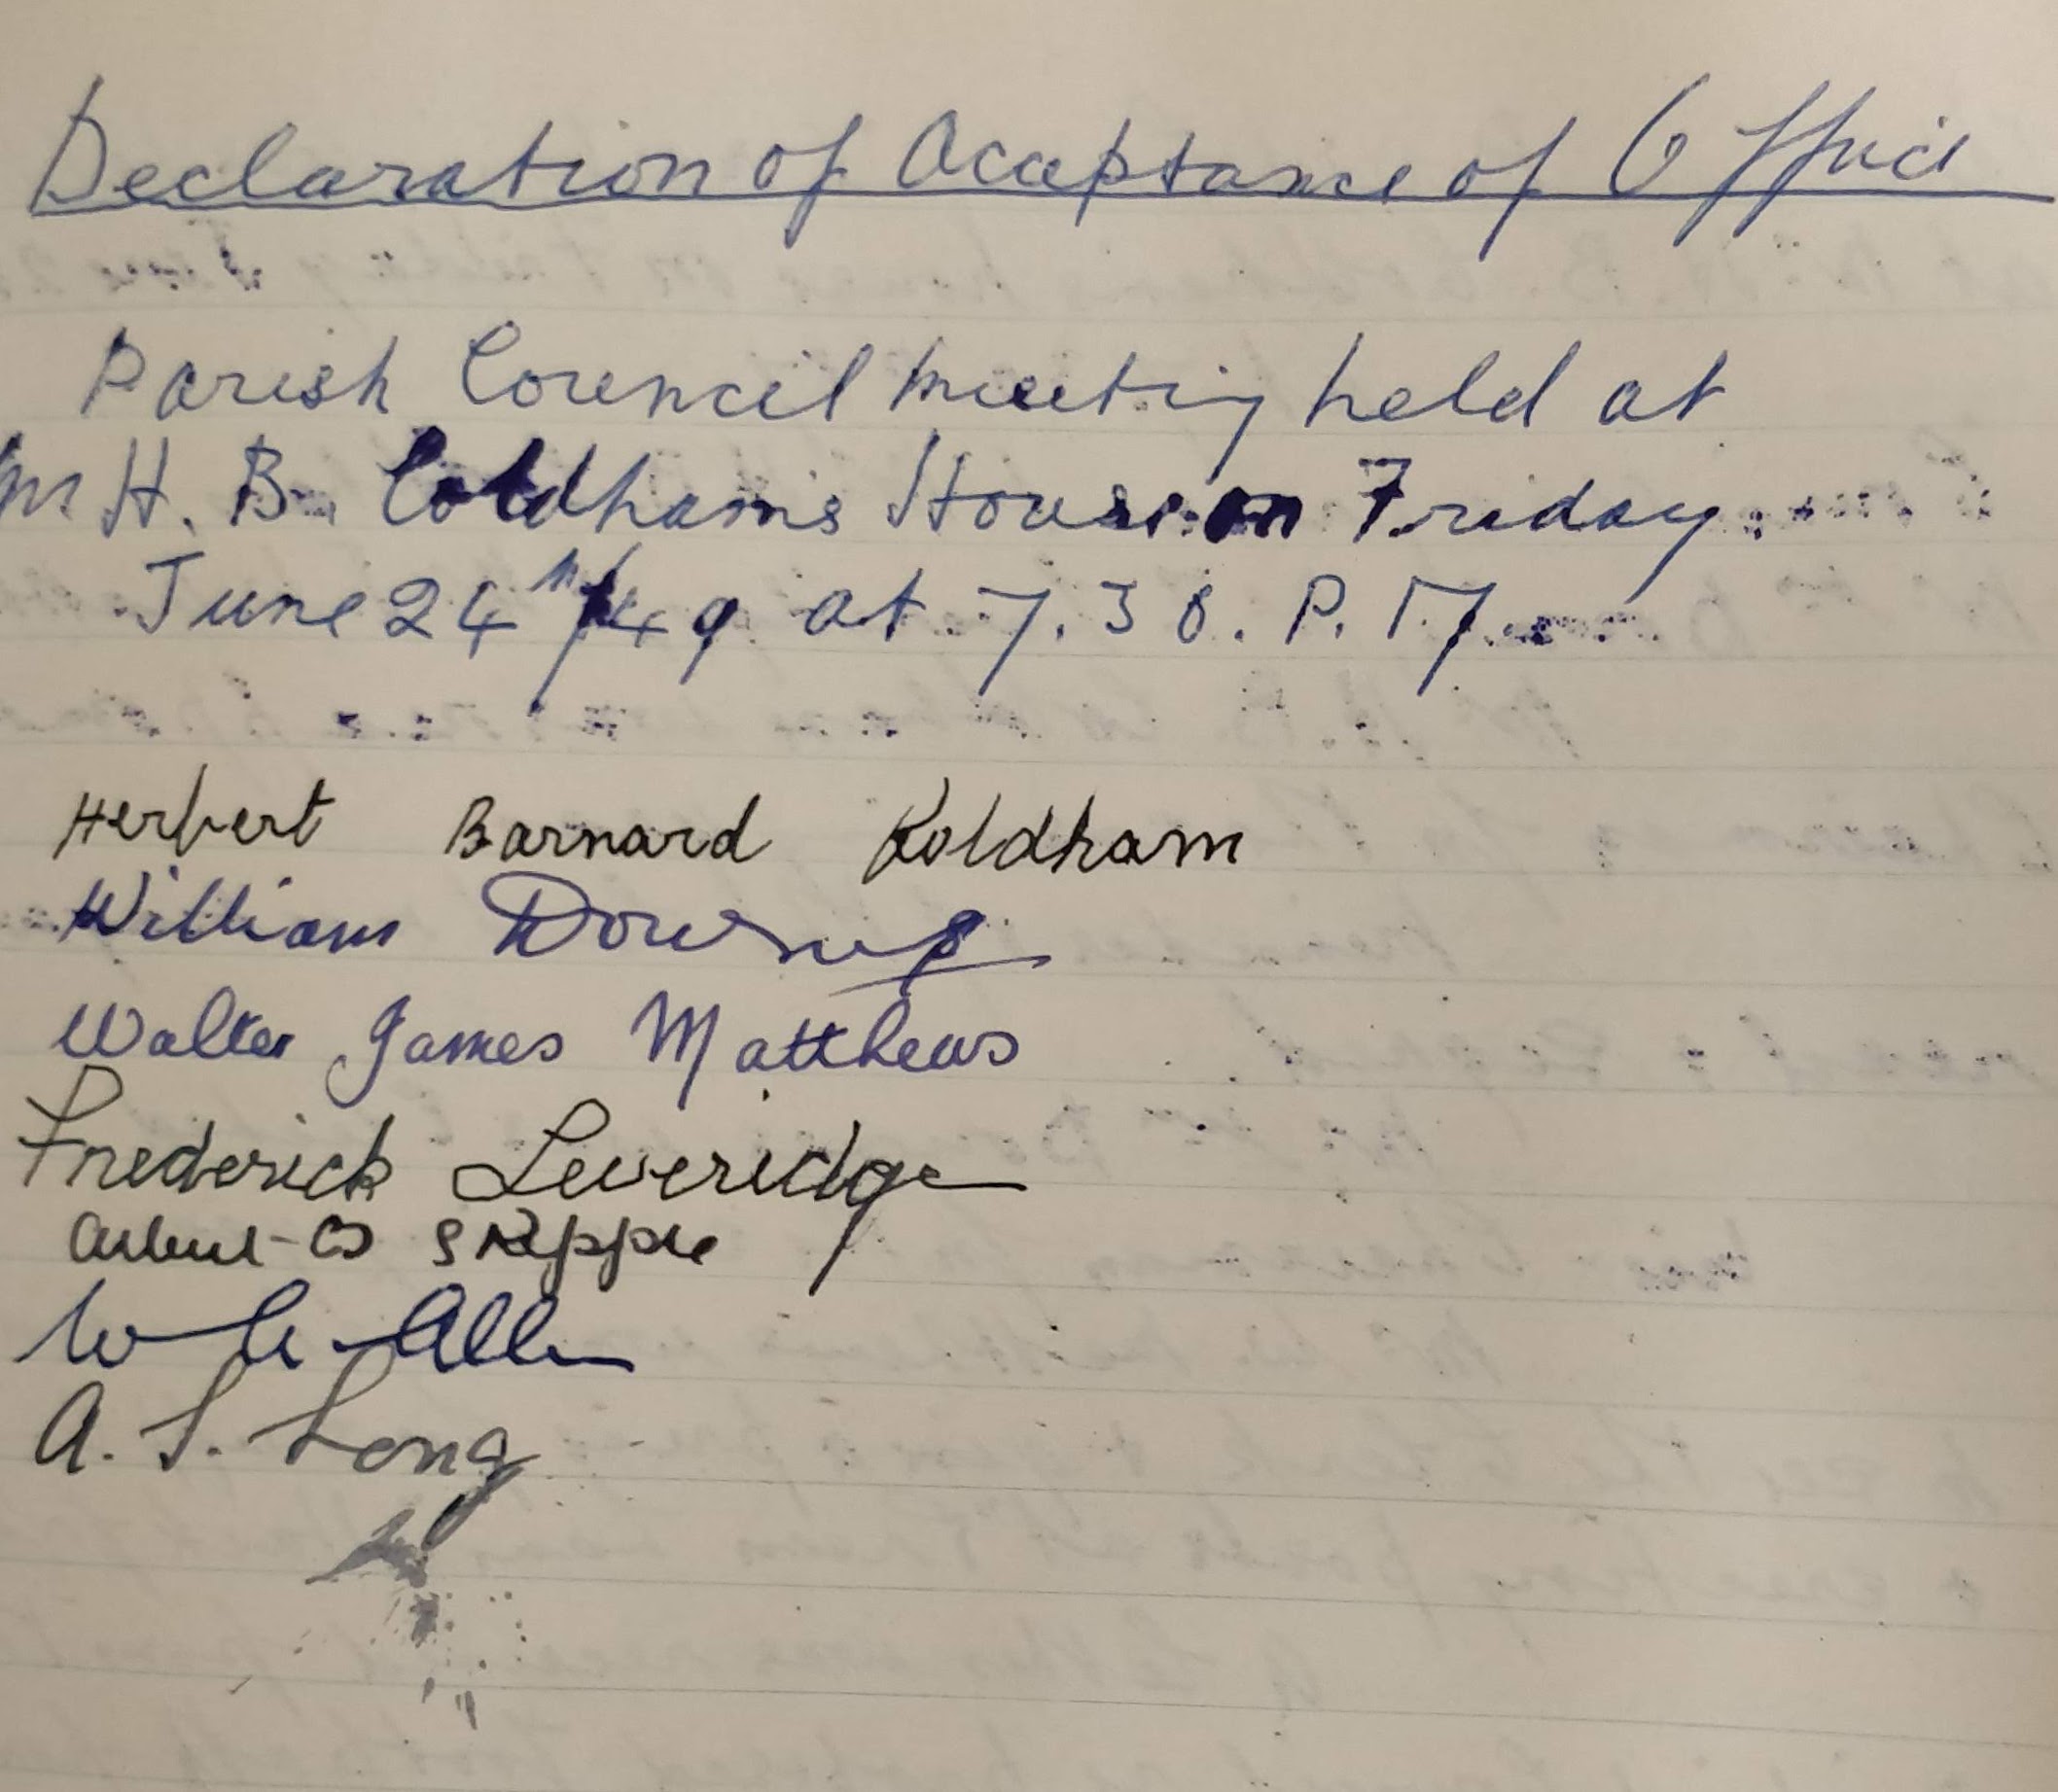 Declaration of Acceptance of Office
Parish Council meeting held at
Mr H. B. Coldhams House on Friday
June 24th/49 at 7.30. P.M.
Herbert Barnard Koldham
William Downes
Walter James Matthews
Frederick Leveridge
O Skipper
W Allen
A. S. Long